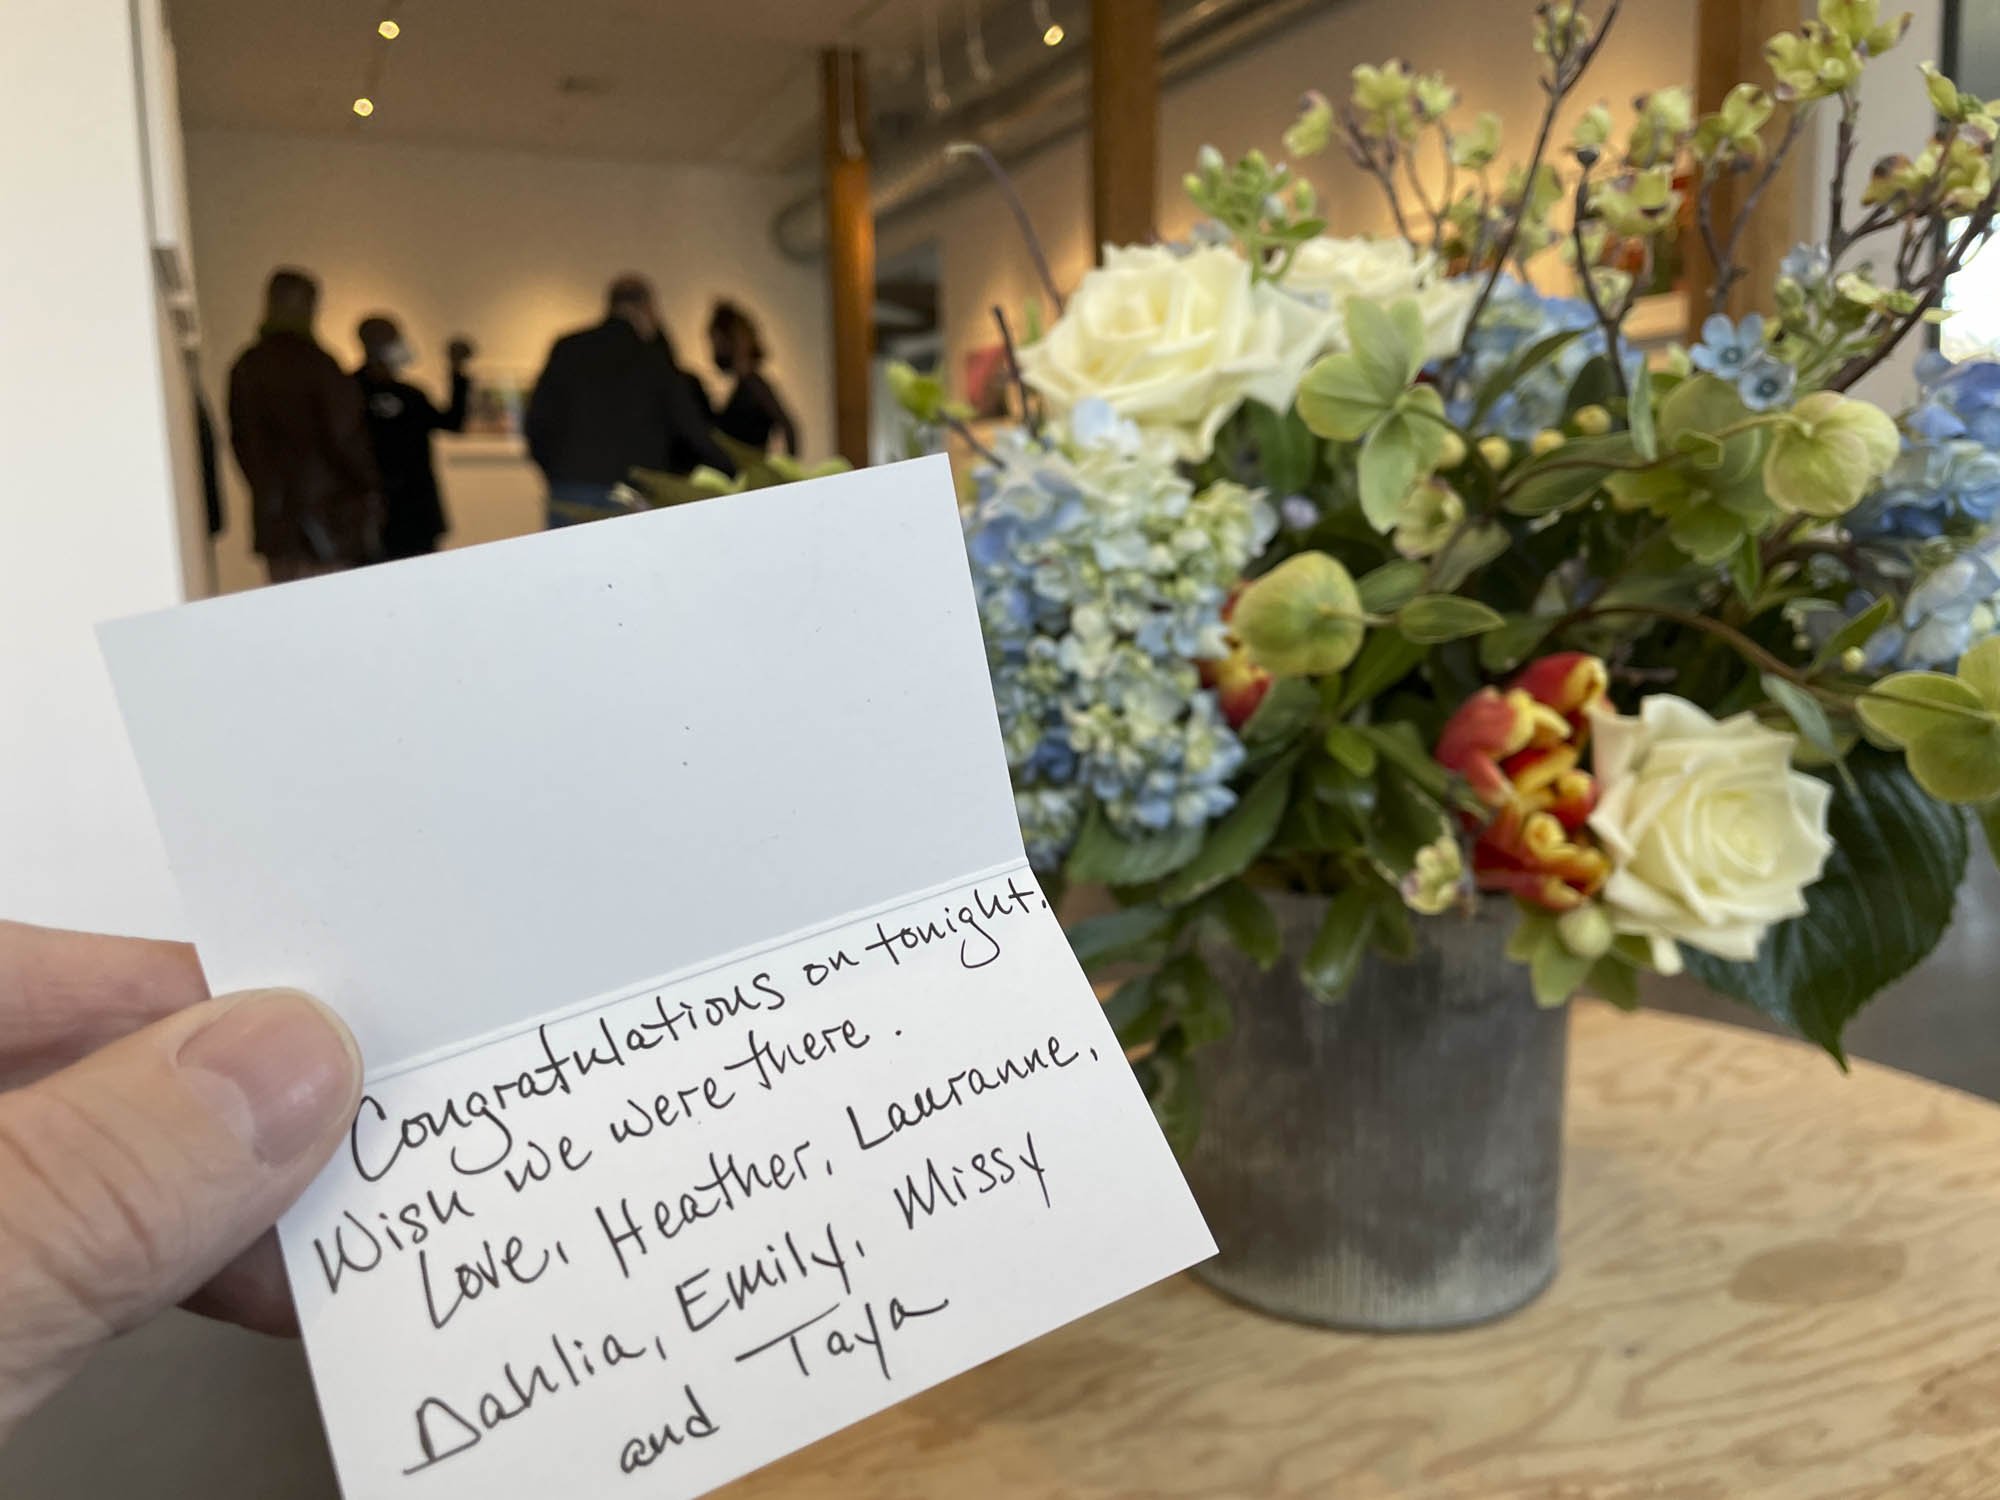 Congratulations on tonight.
Wish we were there.
Love, Heather, Lauranne,
Dahlia, Emily, Missy
and Taya